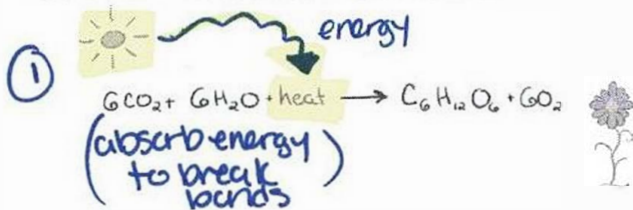 energy
①
6CO₂ + 6H₂O + heat → C₆H₁₂O₆ + 6O₂
(absorb energy
to break
bonds)